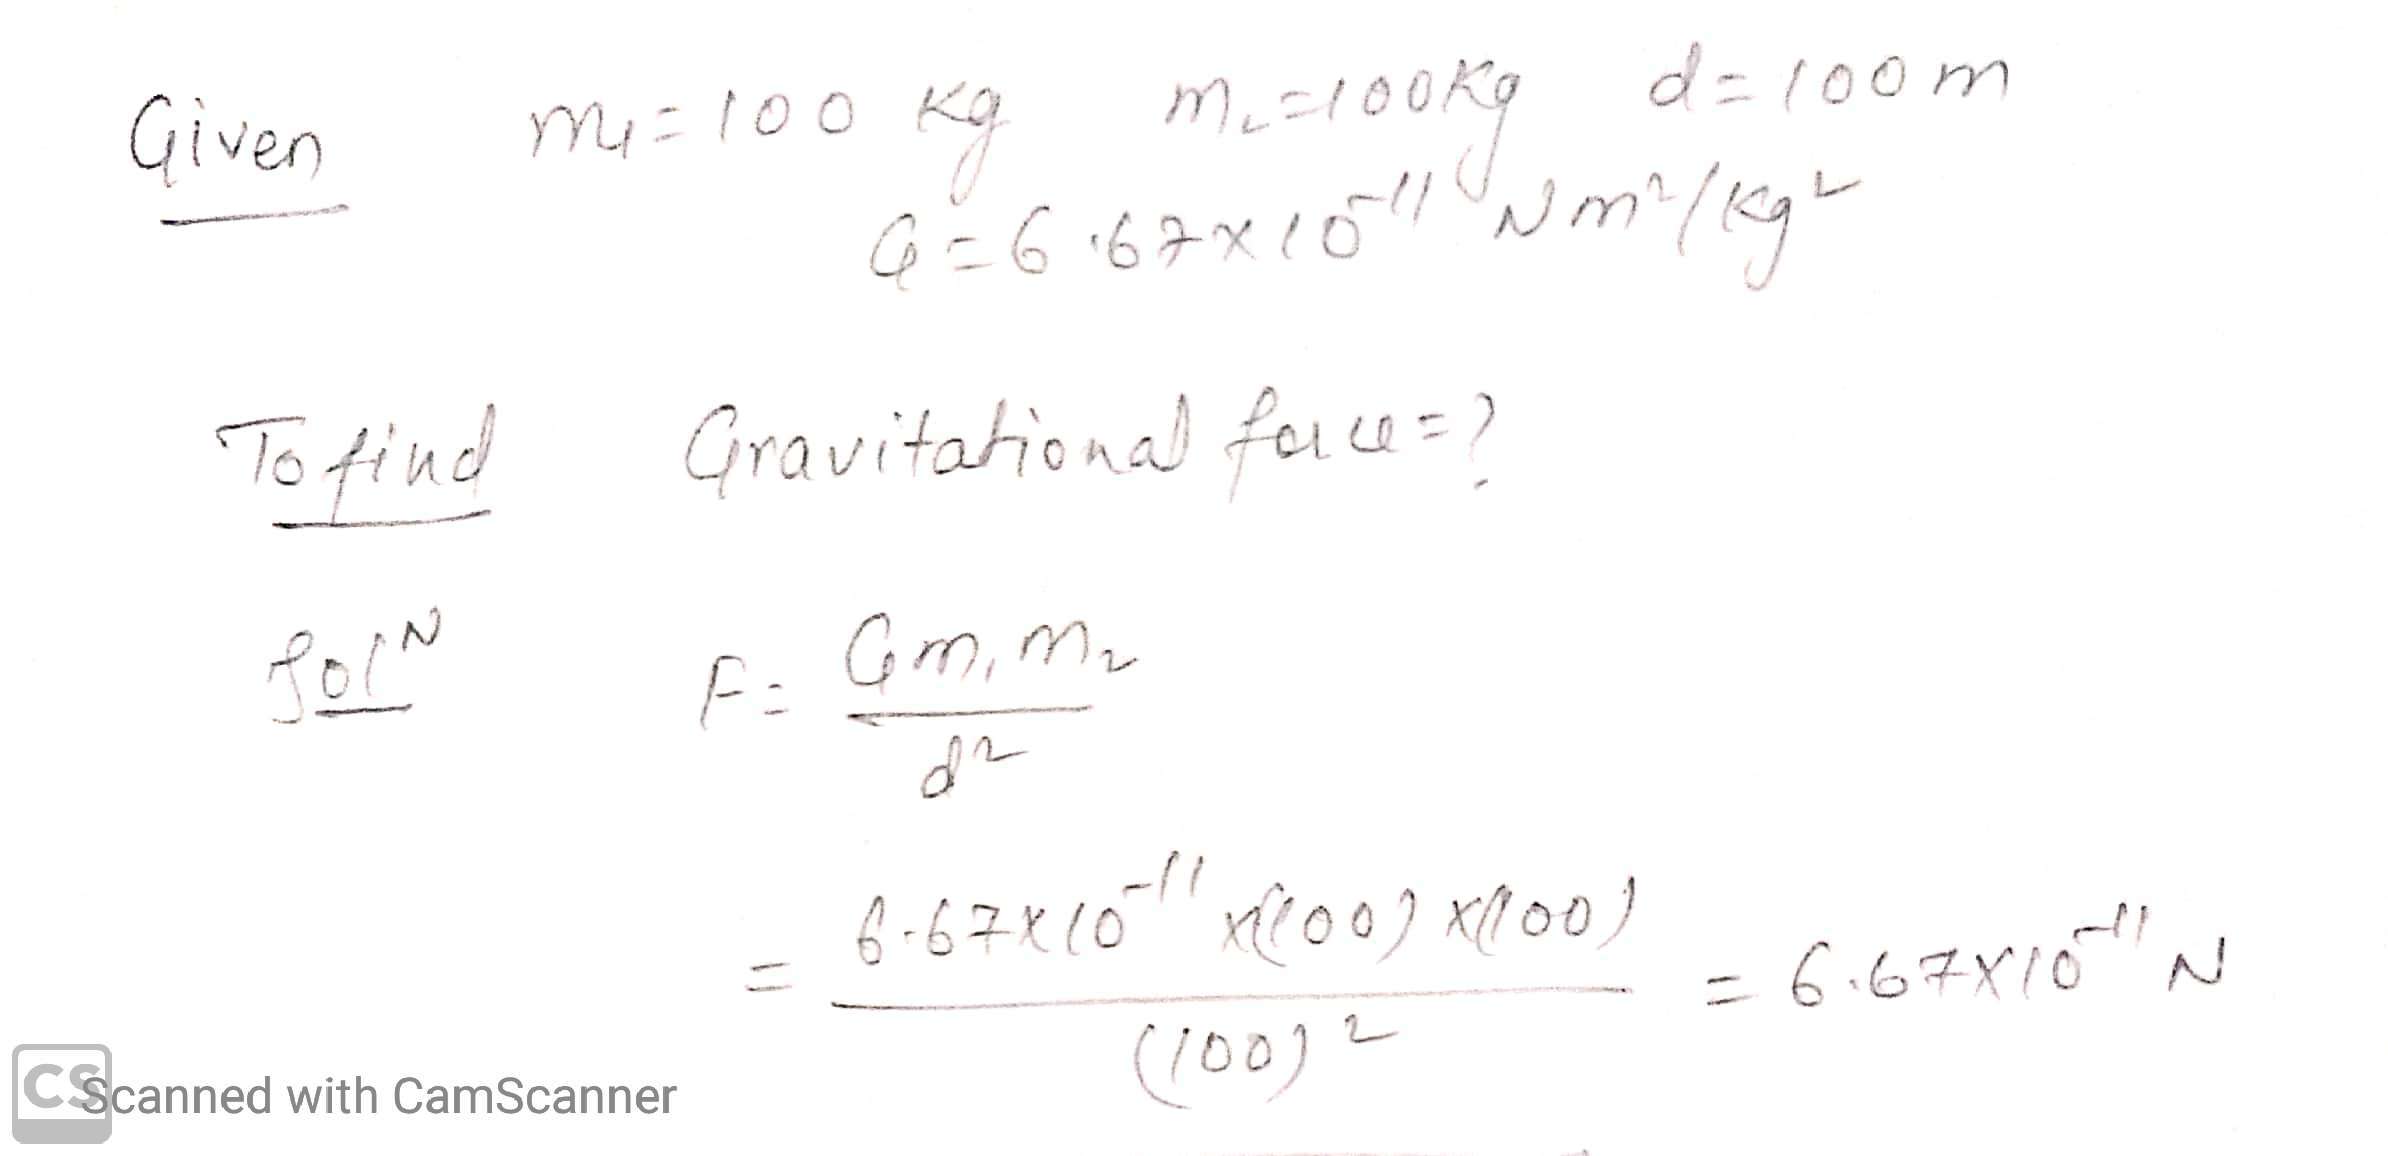 Given m₁=100 kg m₂=100kg d=100m
G=6.67x10⁻¹¹ Nm²/kg²
To find Gravitational force=?
Solᴺ F= Gm₁m₂
d²
= 6.67x10⁻¹¹x(100)x(100) = 6.67x10⁻¹¹ N
(100)²
CS Scanned with CamScanner